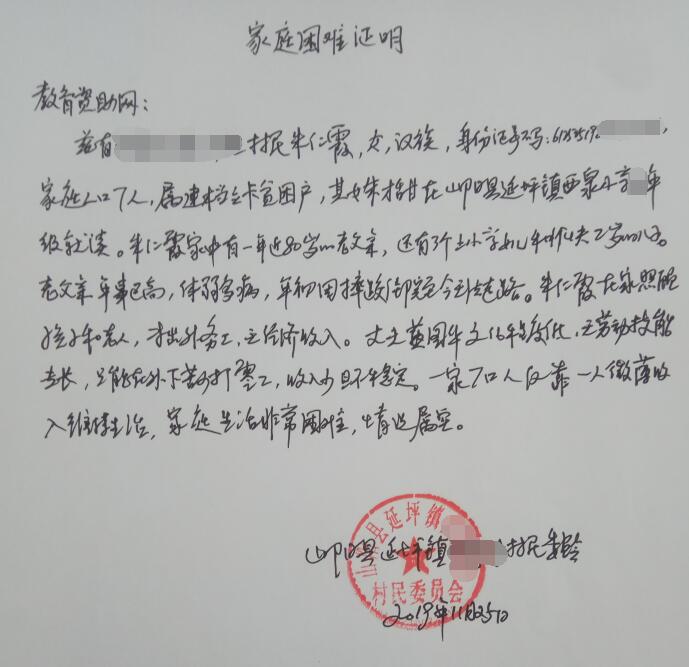 家庭困难证明
教育资助网：
兹有 村民朱仁霞，女，汉族，身份证号码：
家庭人口7人，属建档立卡贫困户，其女朱 在山阳县延坪镇西泉小学 年
级就读。朱仁霞家中有一年近80岁的老父亲，还有3个上小学 和一个 2岁的儿子。
老父亲年事已高，体弱多病，年初因摔跤 至今 走路。朱仁霞在家照顾
孩子和老人，未出外务工，无经济收入。丈夫 因 文化程度低，无劳动技能
专长，只能在外下苦力打零工，收入少且不稳定。一家7口人仅靠一人微薄收
入维持生活，家庭生活非常困难，情况属实。
山阳县延坪镇 村民委会
2019年11月25日
山 县延坪镇
村民委员会